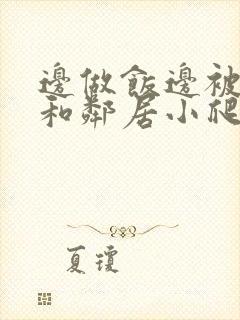 邊做飯邊被
和鄰居小爬
夏瓊